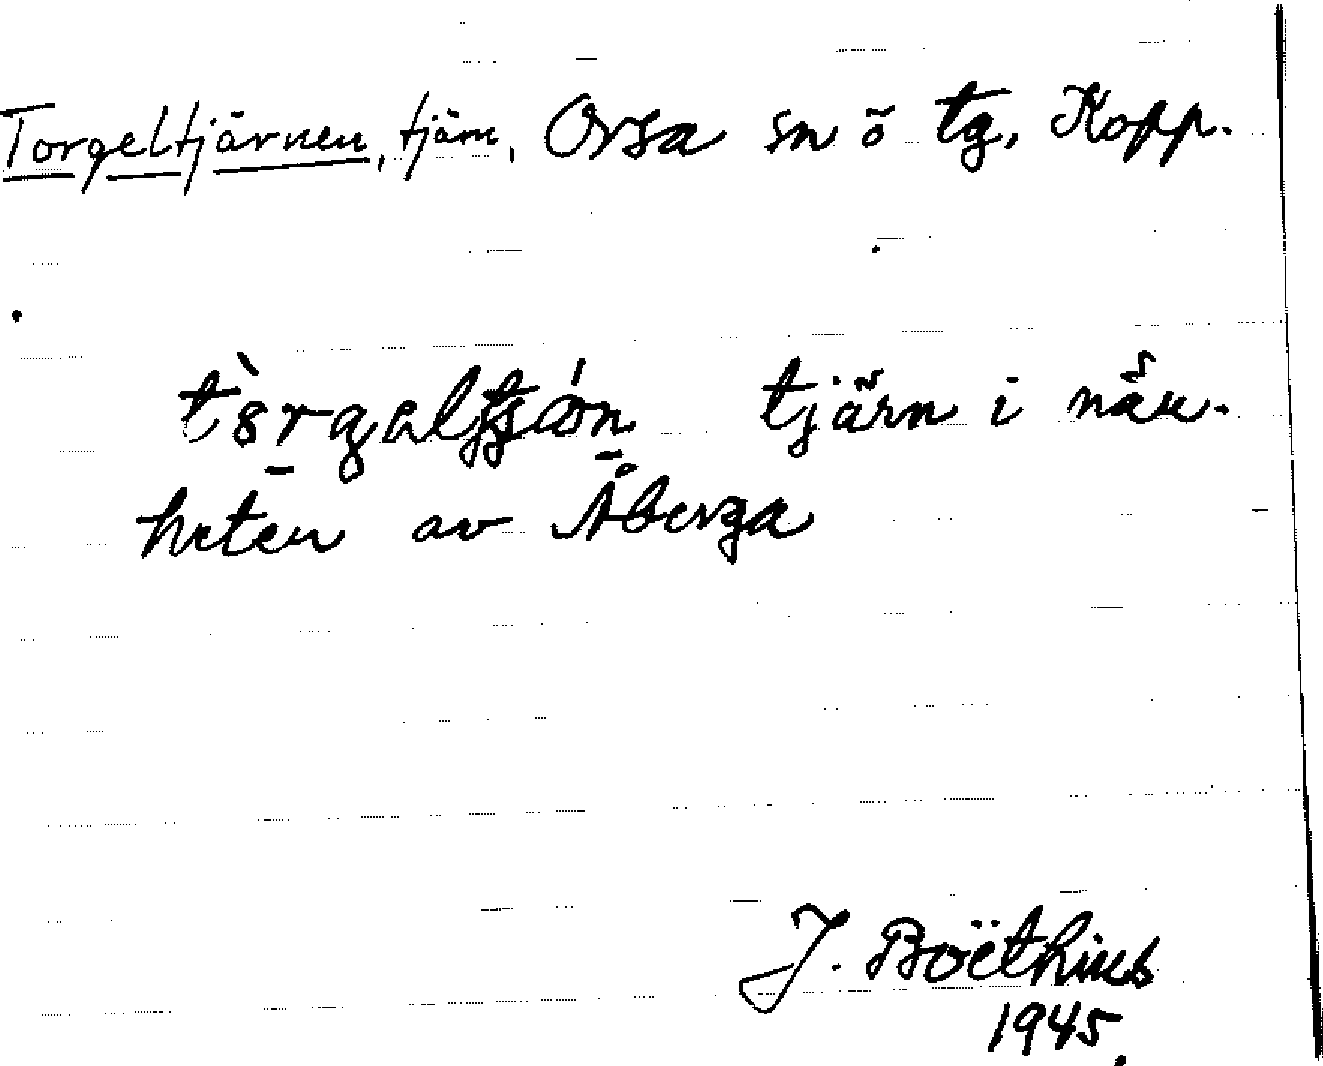 Torgeltjärnen, tjärn, Orsa sn o tg, Kopp.
tjärn i när-
heten av Åberga
J. Boëthius
1945.